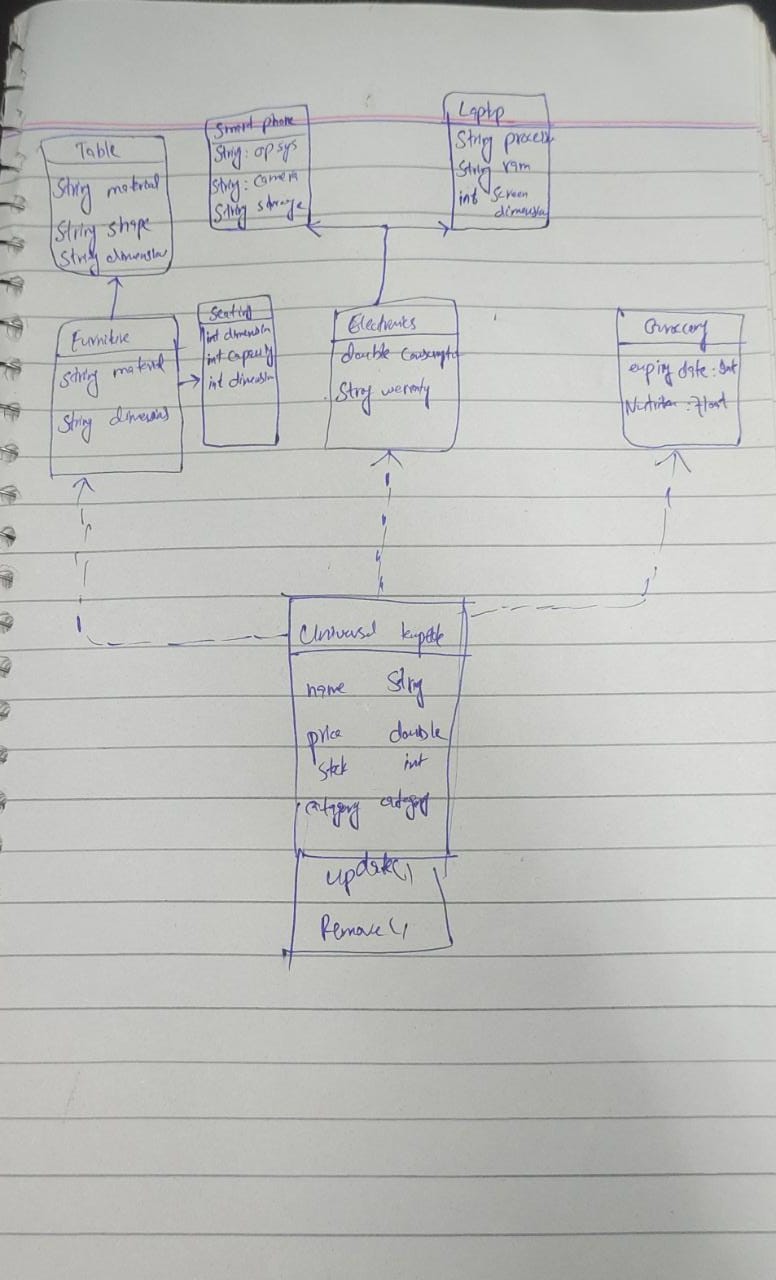 Table
String material
String shape
String dimension
Smart phone
String: op sys
String: camera
String storage
Laptop
String process
String ram
int screen
dimension
Furniture
String material
String dimensions
Seating
int dimension
int capacity
int dimension
Electronics
double consumpt
String warranty
expiry date :
Nutrition : Float
Universal
name String
price double
Stock int
category category
update()
Remove()